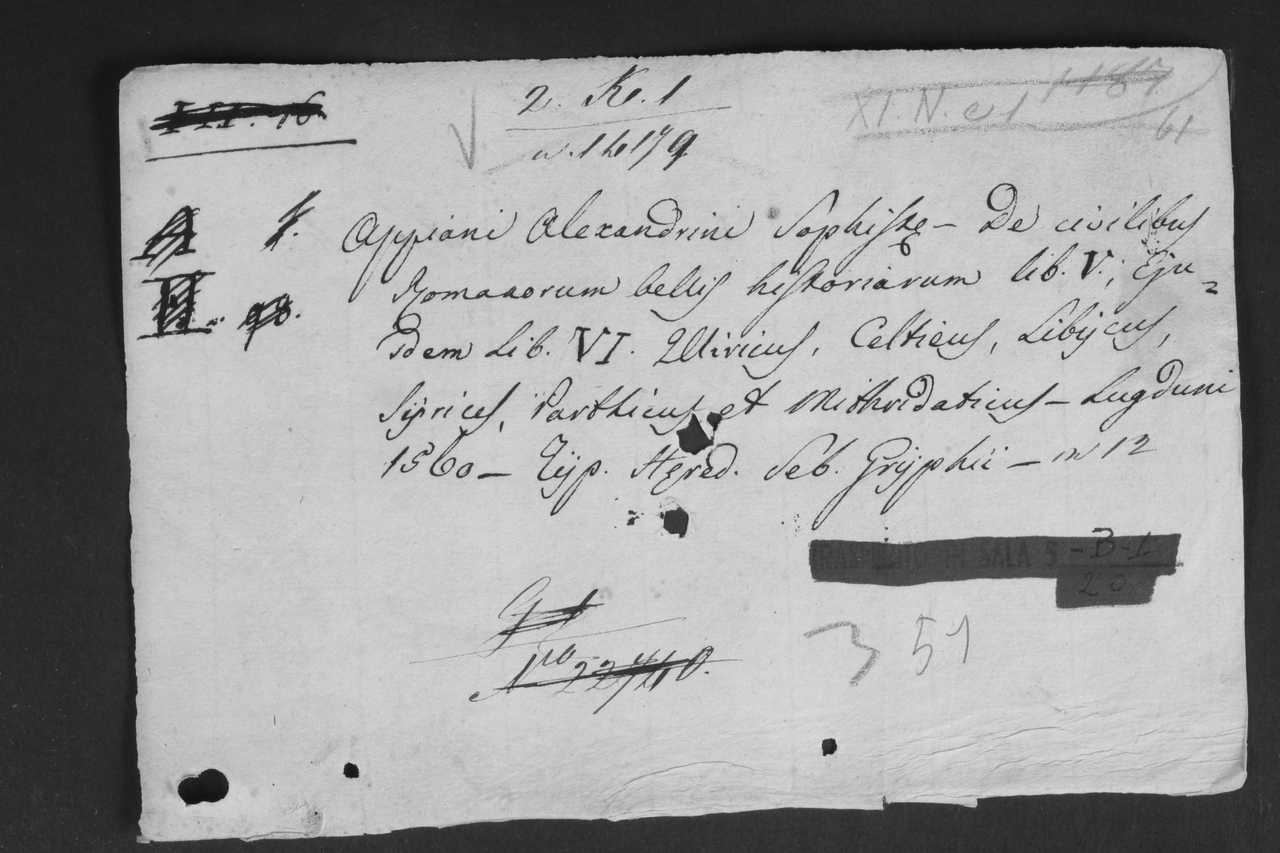 III. 46
2. K. 1
XI. N. e 1
61
Appiani Alexandrini Sophistę – De civilibus
Romanorum bellis historiarum lib. V.; Eju-
sdem Lib. VI. Illiricus, Celticus, Libijcus,
Sijrices, Parthicus et Mithridaticus – Lugduni
1560 – Tijp. Hęred. Seb. Grijphii – in 12
TRASFERITO IN SALA 5 – B – 1
20
No 22740.
3 51